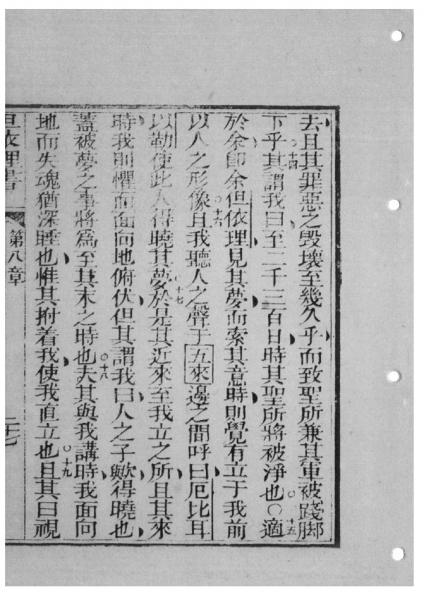 去且其罪惡之毀壞至幾久乎而致聖所兼其軍被踐脚
下乎其謂我曰至二千三百日時其聖所將被淨也○適
於余卽余但依理見其夢而索其意時則覺有立于我前
以人之形像且我聽人之聲于五來邊之間呼曰厄比耳
以勒使此人得曉其夢於是其近來至我立之所且其來
時我則懼而面向地俯伏但其謂我曰人之子歟得曉也
蓋被夢之事將爲至其末之時也夫其與我講時我面向
地而失魂猶深睡也惟其拊着我使我直立也且其曰視
但依理書 第八章